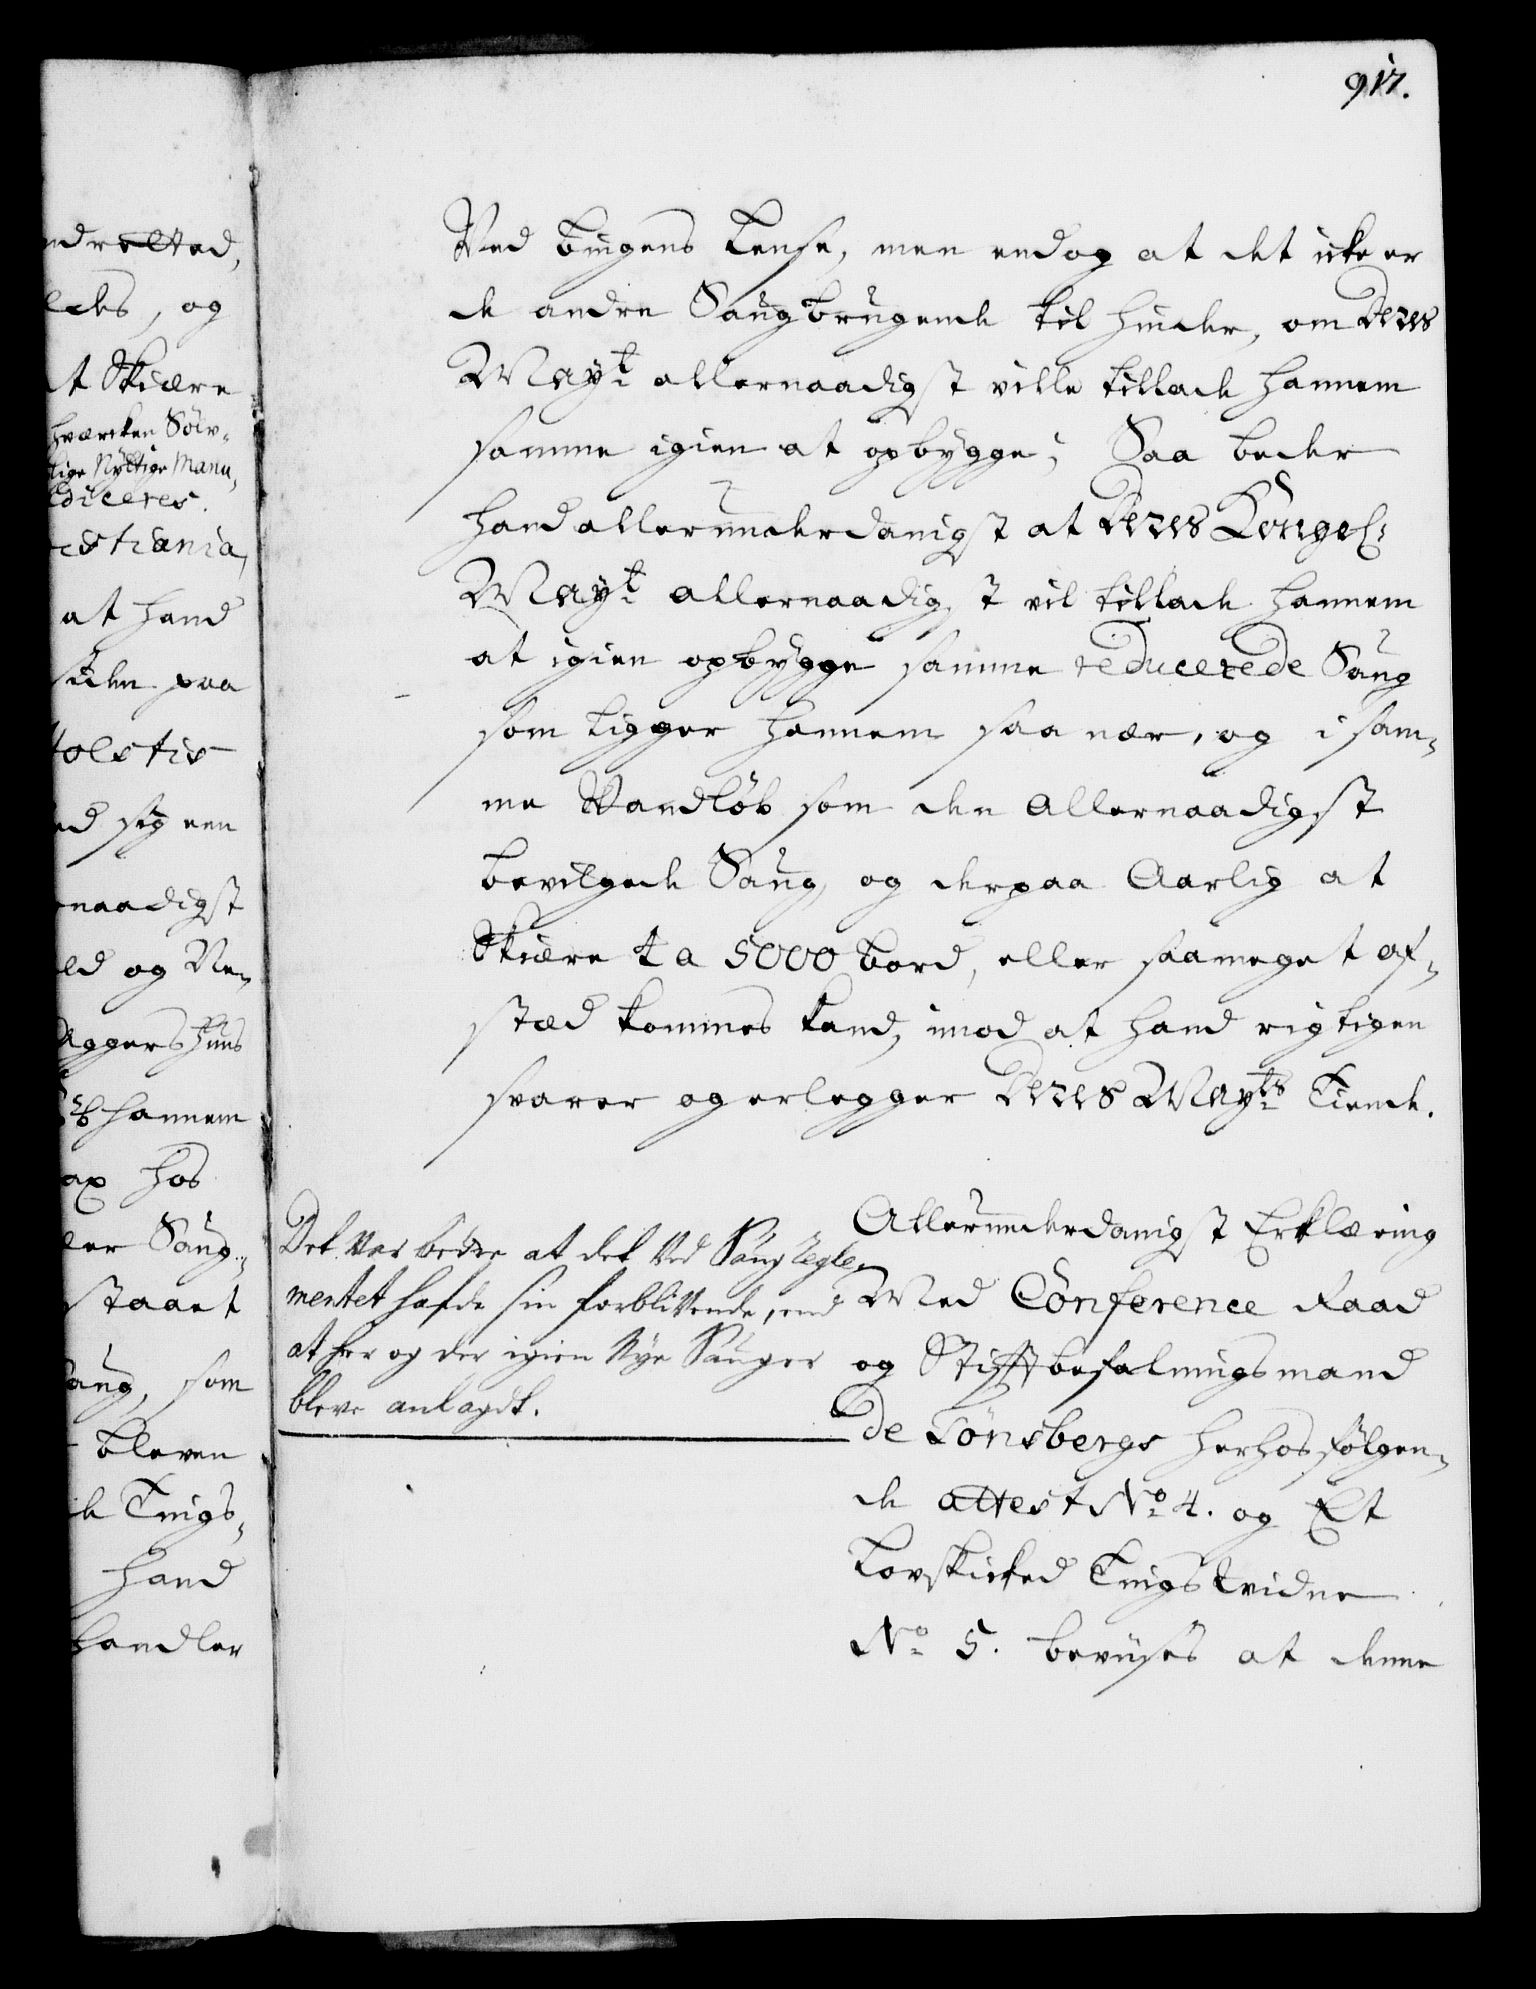 917.
ndretted,
ldes, og
t Skiære
hværcken Söiv-
lige Nyttige Manu-
ediceres.
istiania,
at hand
siden paa
tolstis
ed sig een
naadigst
ld og Ne-
Aggershuus
hannem
ap hos
ler Saug-
staaet
Saug, som
bleven
de Tings-
hand
handler
Ved bugens Lense, men endog at det icke er
de andre Saugbrugende til hinder, om Deres
Mayt allernaadigst ville tillade hannem
samme igien at opbygge; Saa beder
hand allerunderdanigst at Deres Kongel:
Mayt allernaadigst vil tillade hannem
at igien opbygge samme reducerede Saug
som ligger hannem saa nær, og i sam-
me Vandløb som den Allernaadigst
bevilgede Saug, og derpaa Aarlig at
Skiære 4 a 5000 bord, eller saameget af-
stæd kommes kand, imod at hand rigtigen
svarer og erlegger Deres Mayts Tiende.
Det var bedre at det Ved Saug regle-
mentet hafde sin forblivende, end
at her og der igien Nye Sauger
bleve anlagdt.
Allerunderdanigst Erklæring
Med Conference Raad
og Stiftbefalningsmand
De Tönsbergs herhosfølgen-
de attest No 4. og Et
Lovskicked Tingsvidne
No 5. beviises at denne